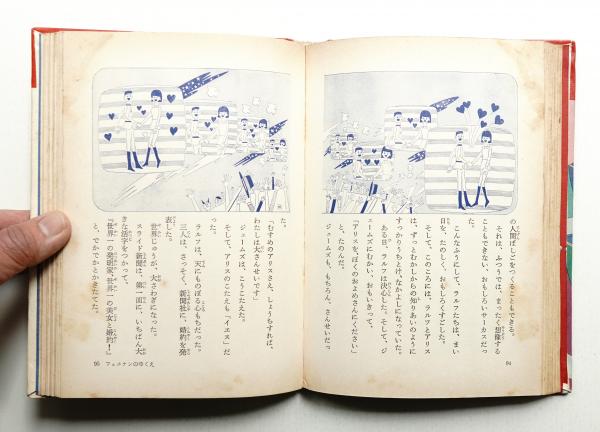 の人間ばしごをつくることもできる。
それは、ふつうでは、まったく想像する
こともできない、おもしろいサーカスだっ
た。
こんなふうにして、ラルフたちは、まい
日を、たのしく、おもしろくすごした。
そして、このころには、ラルフとアリス
は、ずっとむかしからの知りあいのように
すっかりうちとけ、なかよしになっていた。
ある日、ラルフは決心した。そして、ジ
ェームズにむかい、おもいきって、
「アリスを、ぼくのおよめさんにください」
と、たのんだ。
ジェームズも、もちろん、さんせいだっ
94
た。
「むすめのアリスさえ、しょうちすれば、
わたしは大さんせいです」
ジェームズは、こうこたえた。
そして、アリスのこたえも「イエス」だ
った。
ラルフは、天にものぼる心もちだった。
三人は、さっそく、新聞社に、婚約を発
表した。
世界じゅうが、大さわぎになった。
スライド新聞は、第一面に、いちばん大
きな活字をつかって、
『世界一の発明家、世界一の美女と婚約！』
と、でかでかとかきたてた。
95 フェルナンのゆくえ